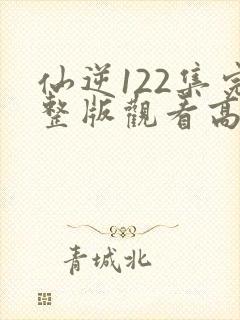 仙逆122集完
整版觀看高
青城北